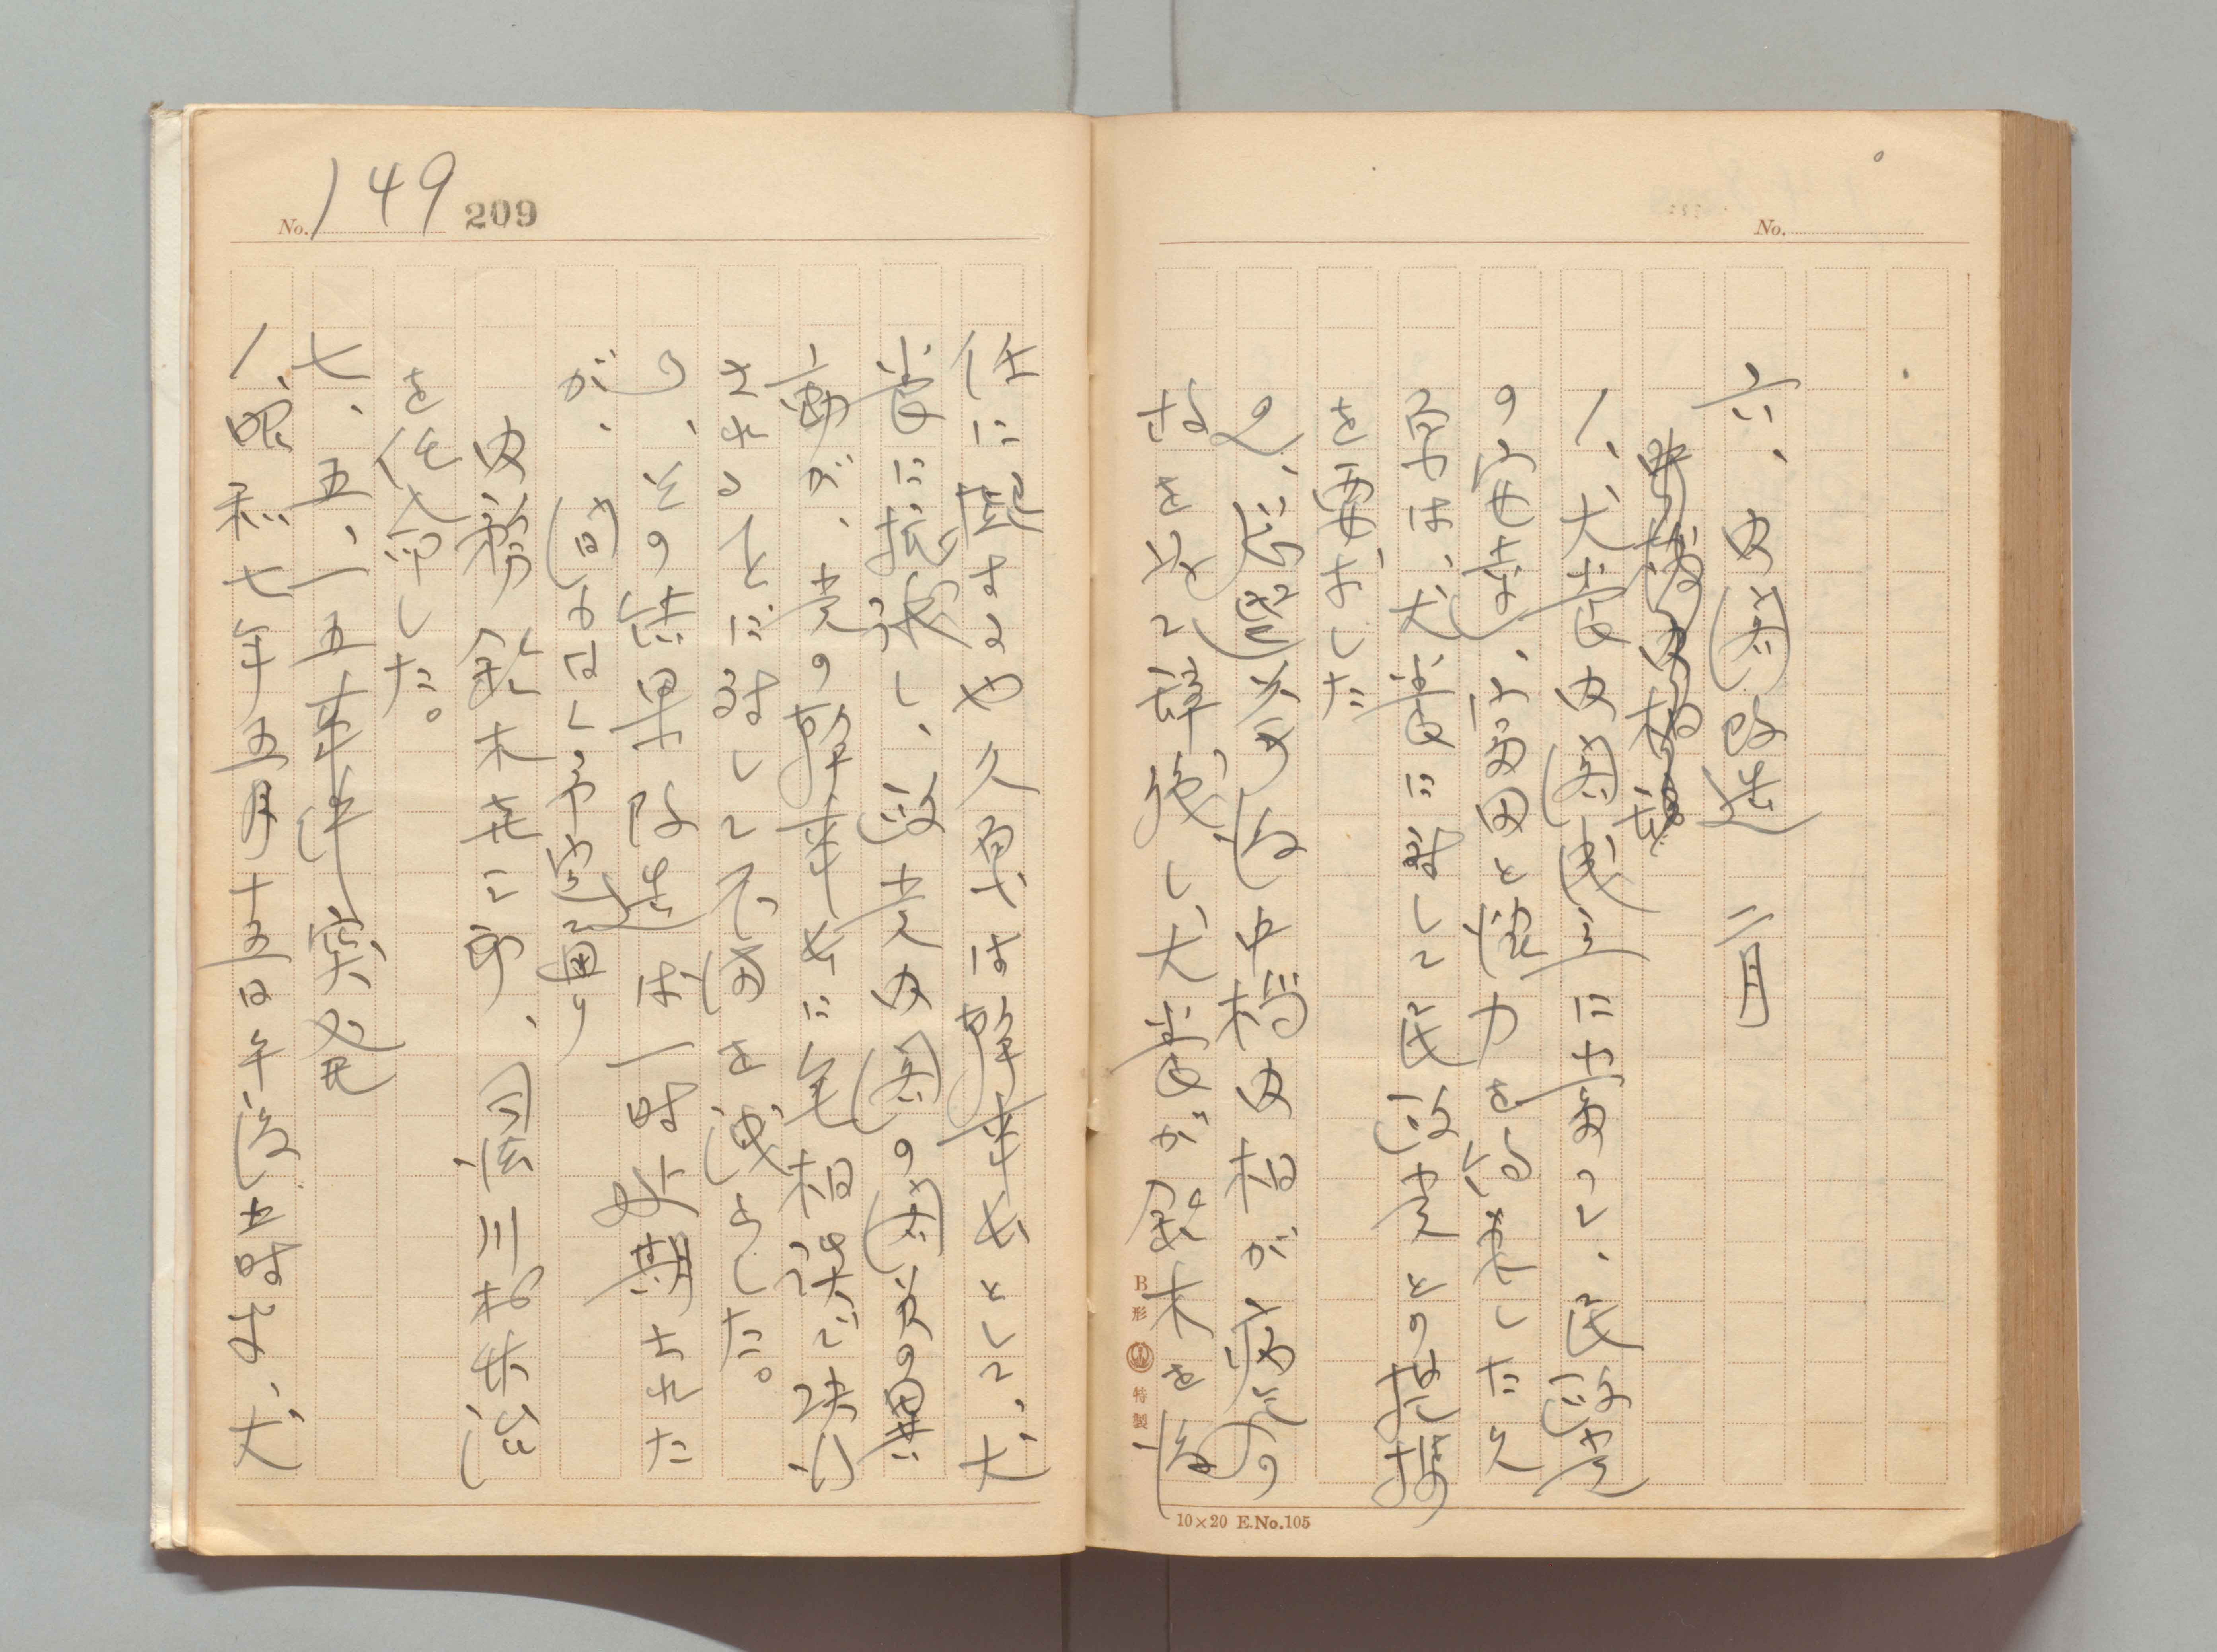 No.
六、内閣改造 二月
1、犬養内閣成立に当って、民政党
の安達、富田と協力を約束した久
原は、犬養に対して民政党との提携
を要求した
2、総選挙后中橋内相が病気の
故を以て辞続し、犬養が鈴木を後
B形 特製
10×20 E.No.105
No. 149 209
任に据すゑや久原は幹事長として、犬
養に抗議し、政党内閣の閣員の異
動が、党の幹事長に無相談で決行
されることに対して不満を洩らした。
の、その結果改造は一時延期された
が、間もなく予定通り
内務 鈴木喜三郎、司法 川村竹治
を任命した。
七、五、一五事件突発
1、昭和七年五月十五日午後五時半、犬